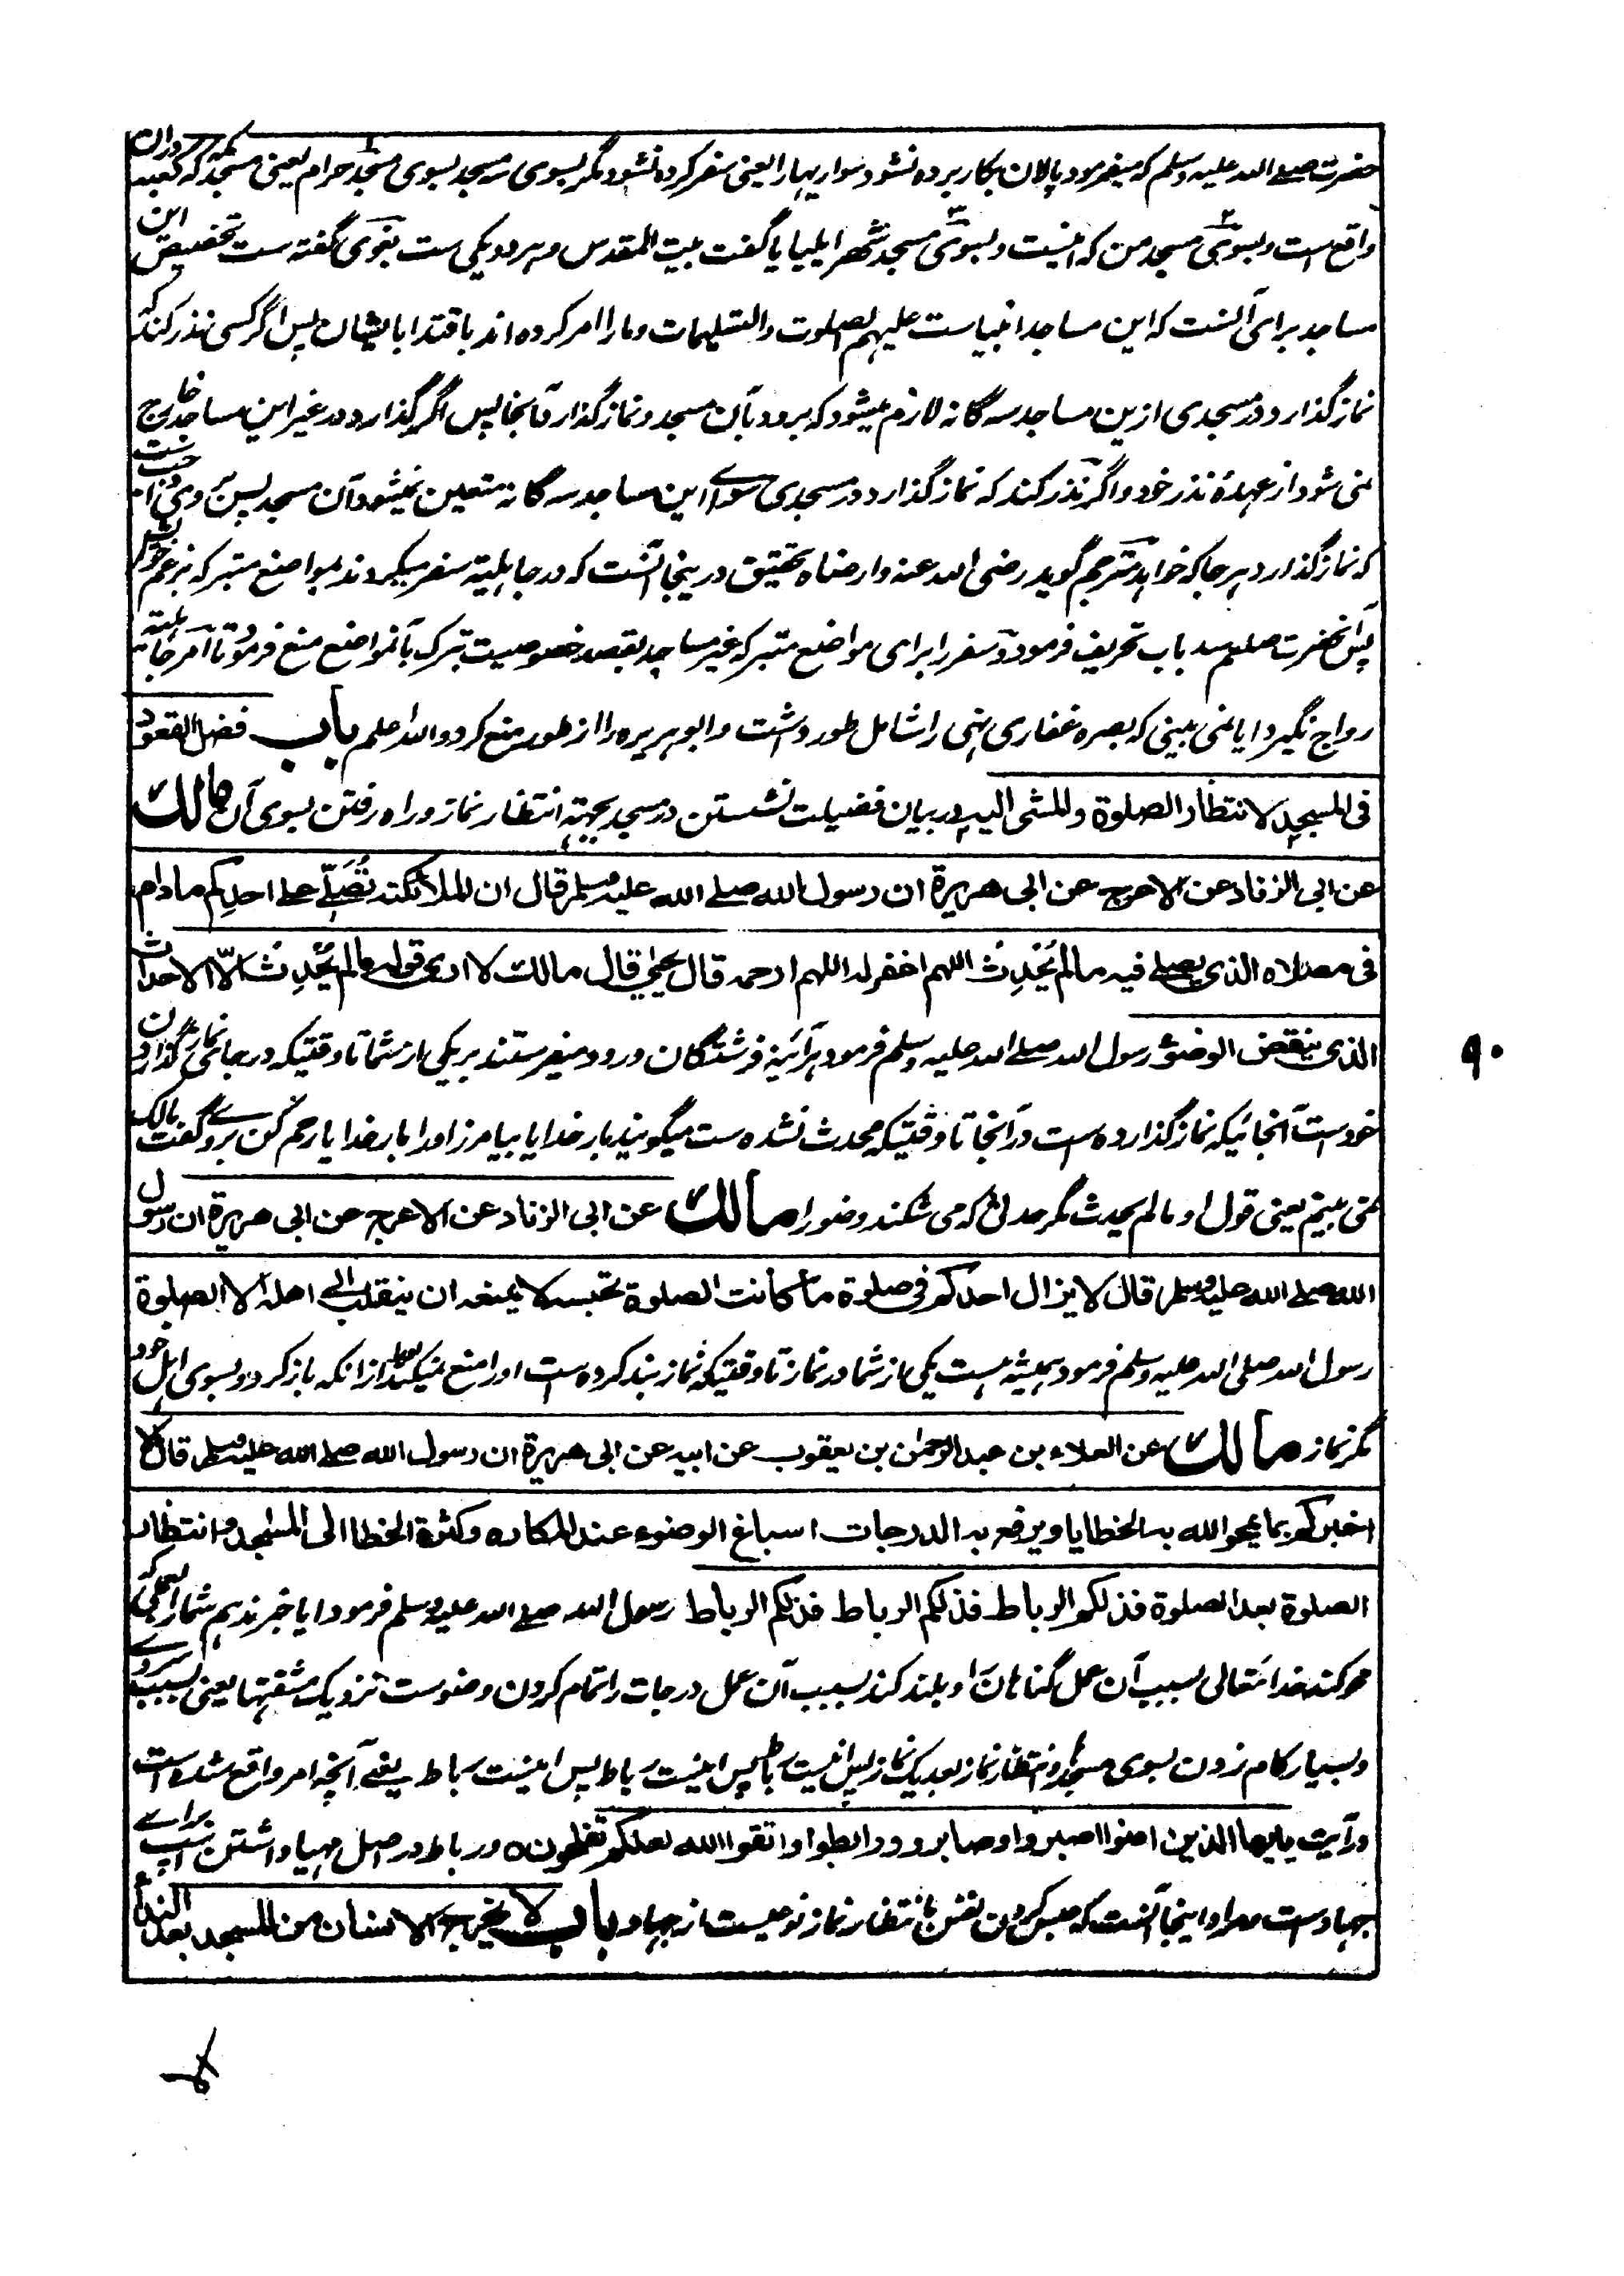 حضرت صلے اللہ علیہ وسلم کہ میفرمود پالان بکار بردہ نشود سواریہا را یعنی سفر کردہ نشود مگر بسوی سہ مسجد بسوی مسجد حرام یعنی مسجد مکہ کہ کعبہ دران
واقع است و بسوی مسجد من کہ اینست و بسوی مسجد شہر ایلیا یا گفت بیت المقدس و ہر دو یکی ست بغوی گفتہ ست تخصیص این
مساجد برای آنست کہ این مساجد انبیاست علیہم الصلوت والتسلیمات و ما را امر کردہ اند باقتدا بایشان پس اگر کسی نذر کند کہ
نماز گذارد در مسجدی ازین مساجد سہ گانہ لازم میشود کہ برود بآن مسجد و نماز گذارد آنجا پس اگر گذارد در غیر این مساجد خارج
نمی شود از عہدۂ نذر خود و اگر نذر کند کہ نماز گذارد در مسجدی سوائے این مساجد سہ گانہ متعین نمیشود آن مسجد پس بر وی واجب است
کہ نماز گذارد ہر جا کہ خواہد مترجم گوید رضی اللہ عنہ وارضاہ تحقیق درینجا آنست کہ در جاہلیتہ سفر میکردند بمواضع متبرکہ بزعم خویش
پس آنحضرت صلعم سد باب تحریف فرمود و سفر را برای مواضع متبرکہ غیر مساجد بقصد خصوصیت تبرک بآنمواضع منع فرمود تا امر جاہلیتہ
رواج نگیرد ایا نمی بینی کہ بصرہ غفاری نہی را شامل طور داشت و ابو ہریرہ را از طور منع کرد واللہ اعلم باب فضل القعود
فی المسجد لانتظار الصلوۃ والمشی الیہ در بیان فضیلت نشستن در مسجد بجہتہ انتظار نماز و راہ رفتن بسوی آن مالك
عن ابی الزناد عن الاعرج عن ابی ھریرۃ ان رسول اللہ صلے اللہ علیہ وسلم قال ان الملائکتہ تُصَلِّے علے احدِکم مادام
فی مصلاہ الذی یصلے فیہ مالم یُحْدِث اللہم اغفرلہ اللہم ارحمہ قال یحییٰ قال مالك لا اری قولہ مالم یُحْدِث الّا الاحداث
الذی ینقض الوضوٗ رسول اللہ صلے اللہ علیہ وسلم فرمود ہر آئینہ فرشتگان درود میفرستند بر یکی از شما تا وقتیکہ در جای نماز گذاردن
خود ست آنجائیکہ نماز گذاردہ است در آنجا تا وقتیکہ محدث نشدہ ست میگویند بار خدایا بیامرز او را بار خدایا رحم کن بروے گفت مالک
نمی بینم یعنی قول او مالم یحدث مگر حدثی کہ می شکند وضو را مالك عن ابی الزناد عن الاعرج عن ابی ھریرۃ ان رسول
اللہ صلے اللہ علیہ وسلم قال لایزال احدکم فی صلوۃ ما کانت الصلوۃ تحبسہ لا یمنعہ ان ینقلب الی اھلہ الا الصلوۃ
رسول اللہ صلی اللہ علیہ وسلم فرمود ہمیشہ ہست یکی از شما در نماز تا وقتیکہ نماز بند کردہ ست او را منع نمیکند او را ازانکہ باز گردد بسوی اہل خود
مگر نماز مالك عن العلاء بن عبد الرحمٰن بن یعقوب عن ابیہ عن ابی ھریرۃ ان رسول اللہ صلے اللہ علیہ وسلم قال الا
اخبرکم بما یمحو اللہ بہ الخطایا ویرفع بہ الدرجات اسباغ الوضوء عند المکارہ وکثرۃ الخطا الی المسٰجد وانتظار
الصلوۃ بعد الصلوۃ فذلکم الرباط فذلکم الرباط فذلکم الرباط رسول اللہ صلے اللہ علیہ وسلم فرمود ایا خبر ندہم شما را بعملی کہ
محو کند خدا تعالی بسبب آن عمل گناہان را و بلند کند بسبب آن عمل درجات را تمام کردن وضوست نزدیک مشقتہا یعنی بسبب سردے
و بسیار گام زدن بسوی مسجد و انتظار نماز بعد یک نماز پس اینست رباط پس اینست رباط پس اینست رباط یعنے آنچہ امر واقع شدہ است
در آیت یایھا الذین امنوا اصبروا وصابروا ورابطوا واتقوا اللہ لعلکم تفلحون ہ و رباط در اصل مہیا داشتن اسپ براے
جہاد ست و مراد اینجا آنست کہ حبس کردن نفس بانتظار نماز نوعیست از جہاد باب لا یخرج الانسان من المسجد بعد النداء
۹۰